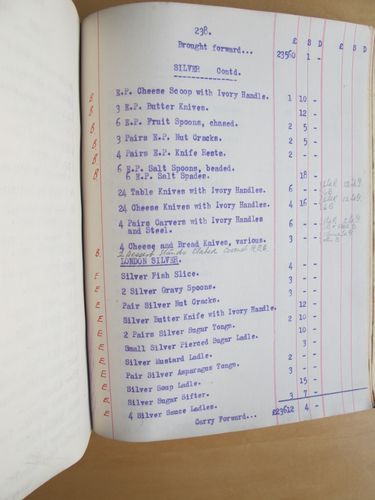 238.
£ S D £ S D
Brought forward... 23560 1 -
SILVER Contd.
B. E.P. Cheese Scoop with Ivory Handle. 1 10 -
B. 3 E.P. Butter Knives. 12 -
B. 6 E.P. Fruit Spoons, chased. 2 5 -
B. 3 Pairs E.P. Nut Cracks. 2 5 -
B. 4 Pairs E.P. Knife Rests. 2 - -
B. 6 E.P. Salt Spoons, beaded.
B. 6 E.P. Salt Spades. 18 -
24 Table Knives with Ivory Handles. 6 - -
24 Cheese Knives with Ivory Handles. 4 16 -
4 Pairs Carvers with Ivory Handles
and Steel. 6 - -
4 Cheese and Bread Knives, various. 3 - -
B. 2 Dessert Stands Plated
LONDON SILVER.
E. Silver Fish Slice. 4 - -
E. 2 Silver Gravy Spoons. 3 - -
E. Pair Silver Nut Cracks. 3 - -
E. Silver Butter Knife with Ivory Handle. 12 -
E. 2 Pairs Silver Sugar Tongs. 2 10 -
E. Small Silver Pierced Sugar Ladle. 10 -
E. Silver Mustard Ladle.
E. Pair Silver Asparagus Tongs.
E. Silver Soup Ladle.
E. Silver Sugar Sifter. 15 -
E. 4 Silver Sauce Ladles. 3 7 -
Carry Forward... £23612 4 -